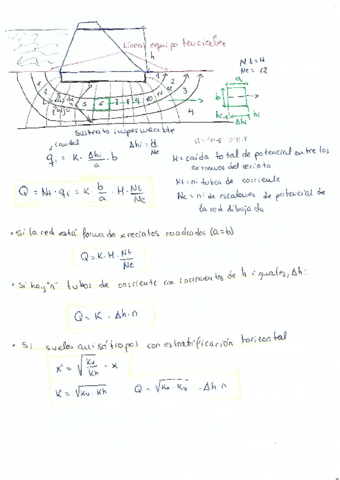 Líneas equipotenciales
h
Nt = 4
Nc = 12
a
b
Δhi
Sustrato impermeable
caudal
qi = K · Δhi/a · b
Δhi = H/Nc
Q = Nt · qi = K b/a · H · Nt/Nc
H = caída total de potencial entre los extremos del recinto
Nt = nº tubos de corriente
Nc = nº de escalones de potencial de la red dibujada
• Si la red está formada x recintos cuadrados (a=b)
Q = K · H · Nt/Nc
• Si hay "n" tubos de corriente con incrementos de h iguales, Δh:
Q = K · Δh · n
• Si suelos anisótropos con estratificación horizontal
x' = √(Kv/Kh) · x
K' = √(Kv · Kh)
Q = √(Kv · Kh) · Δh · n